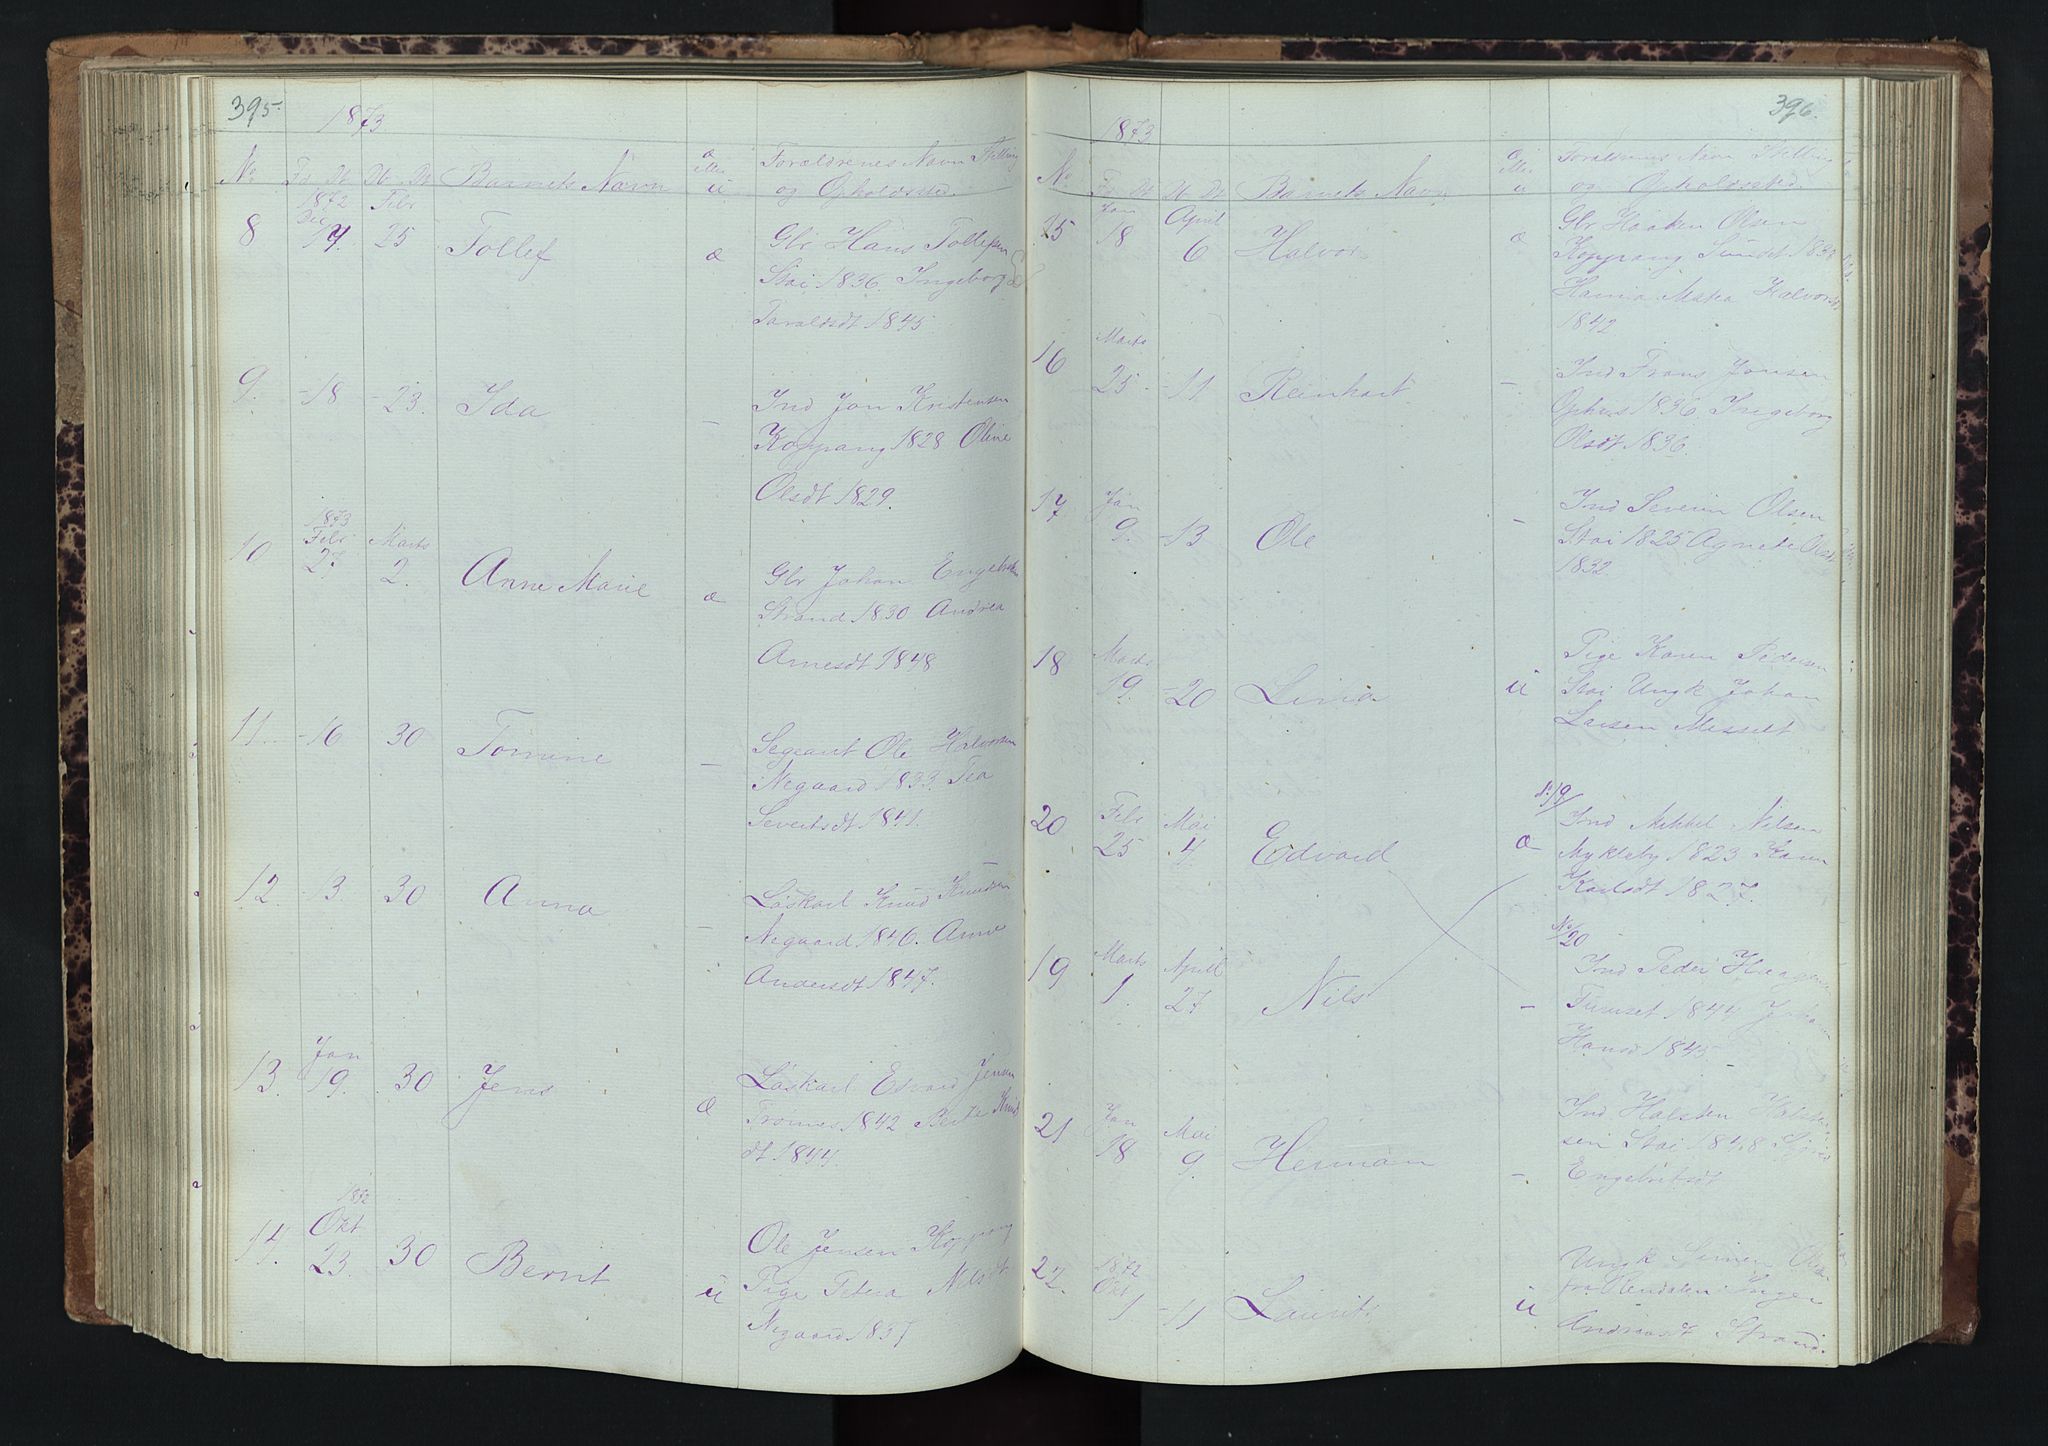 395
1873
No Fd Dt Db Dt Barnets Navn æ eller ü Forældrenes Navn Stilling
og Opholdssted
8 1872 Dec 17 Febr 25 Tollef æ Gbr Hans Tollefsen
Stai 1836 Ingeborg
Taraldsdt 1845
9. -18 -23. Ida - Ind Jon Kristensen
Koppang 1828 Oline
Olsdt 1829.
10 1873 Febr 27. Marts 2. Anne Marie æ Gbr Johan Engebretsen
Strand 1830 Andrea
Arnesdt 1848
11. -16 30 Tomine - Segeant Ole Halvorsen
Negaard 1833. Tea
Severtsdt 1841.
12. -13. 30 Anna - Løskarl Knud Knudsen
Negaard 1846. Anne
Andersdt 1847.
13. Jan 19. 30 Jens æ Løskarl Edvard Jensen
Trønnes 1842 Berte Knuds
dt 1844.
14. 1872 Okt 23. 30 Bernt ü Ole Jensen Koppang
Pige Petera Nilsdt
Negaard 1837
396.
1873
No Fd Dt Db Dt Barnets Navn æ eller ü Forældrenes Navn Stilling
og Opholdssted
15 Jan 18 April 6 Halvor æ Gbr Haaken Olsen
Koppang Sundet
Maria Halvorsdt
1842
16 Marts 25 -11 Reinhart - Ind Frans Jonsen
Ophus 1836 Ingeborg
Olsdt 1836.
17 Jan 9. -13 Ole - Ind Severin Olsen
Stai 1825 Agnete Olsdt
1832
18 Marts 19. -20 Lina ü Pige Karen Pedersen
Stai Ungk Johan
Larsen Messelt
20 Febr 25 Mai 4. Edvard æ No 19/ Ind Mikkel Nilsen
Mykleby 1823 Karen
Karlsdt 1827.
19 Marts 1. April 27 Nils - No 20 Ind Peder Haagensen
Turuset 1844
Hansd 1845
21 Jan 18 Mai 9. Herman - Ind Halsten Halsten
sen Stai 1848
Engebretsdt
22. 1872 Okt 1 -11 Laurits ü Ungk Simen Olsen
fra Rendalen Inger
Andreasdt Strand.